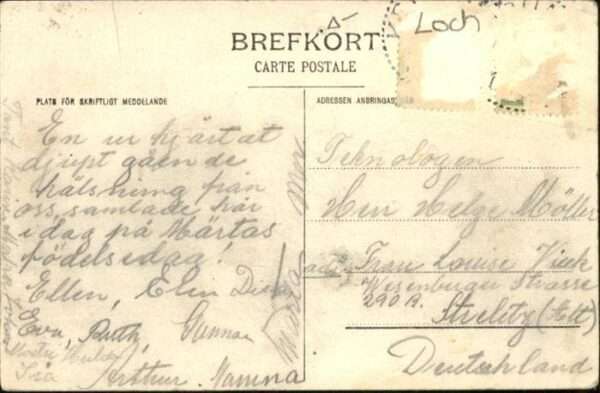 Loch
BREFKORT
CARTE POSTALE
PLATS FÖR SKRIFTLIGT MEDDELANDE
ADRESSEN ANBRINGAS
En ur hjärtat
djupt gående
hälsning från
oss samlade här
idag på Märtas
födelsedag!
Ellen, Elin
Eva, Ruth, Gunnar
Arthur. Mamma
Teknologen
Herr Helge Möller
Frau Louise Vick
Wesenberger Strasse
290 A.
Strelitz (Alt)
Deutschland